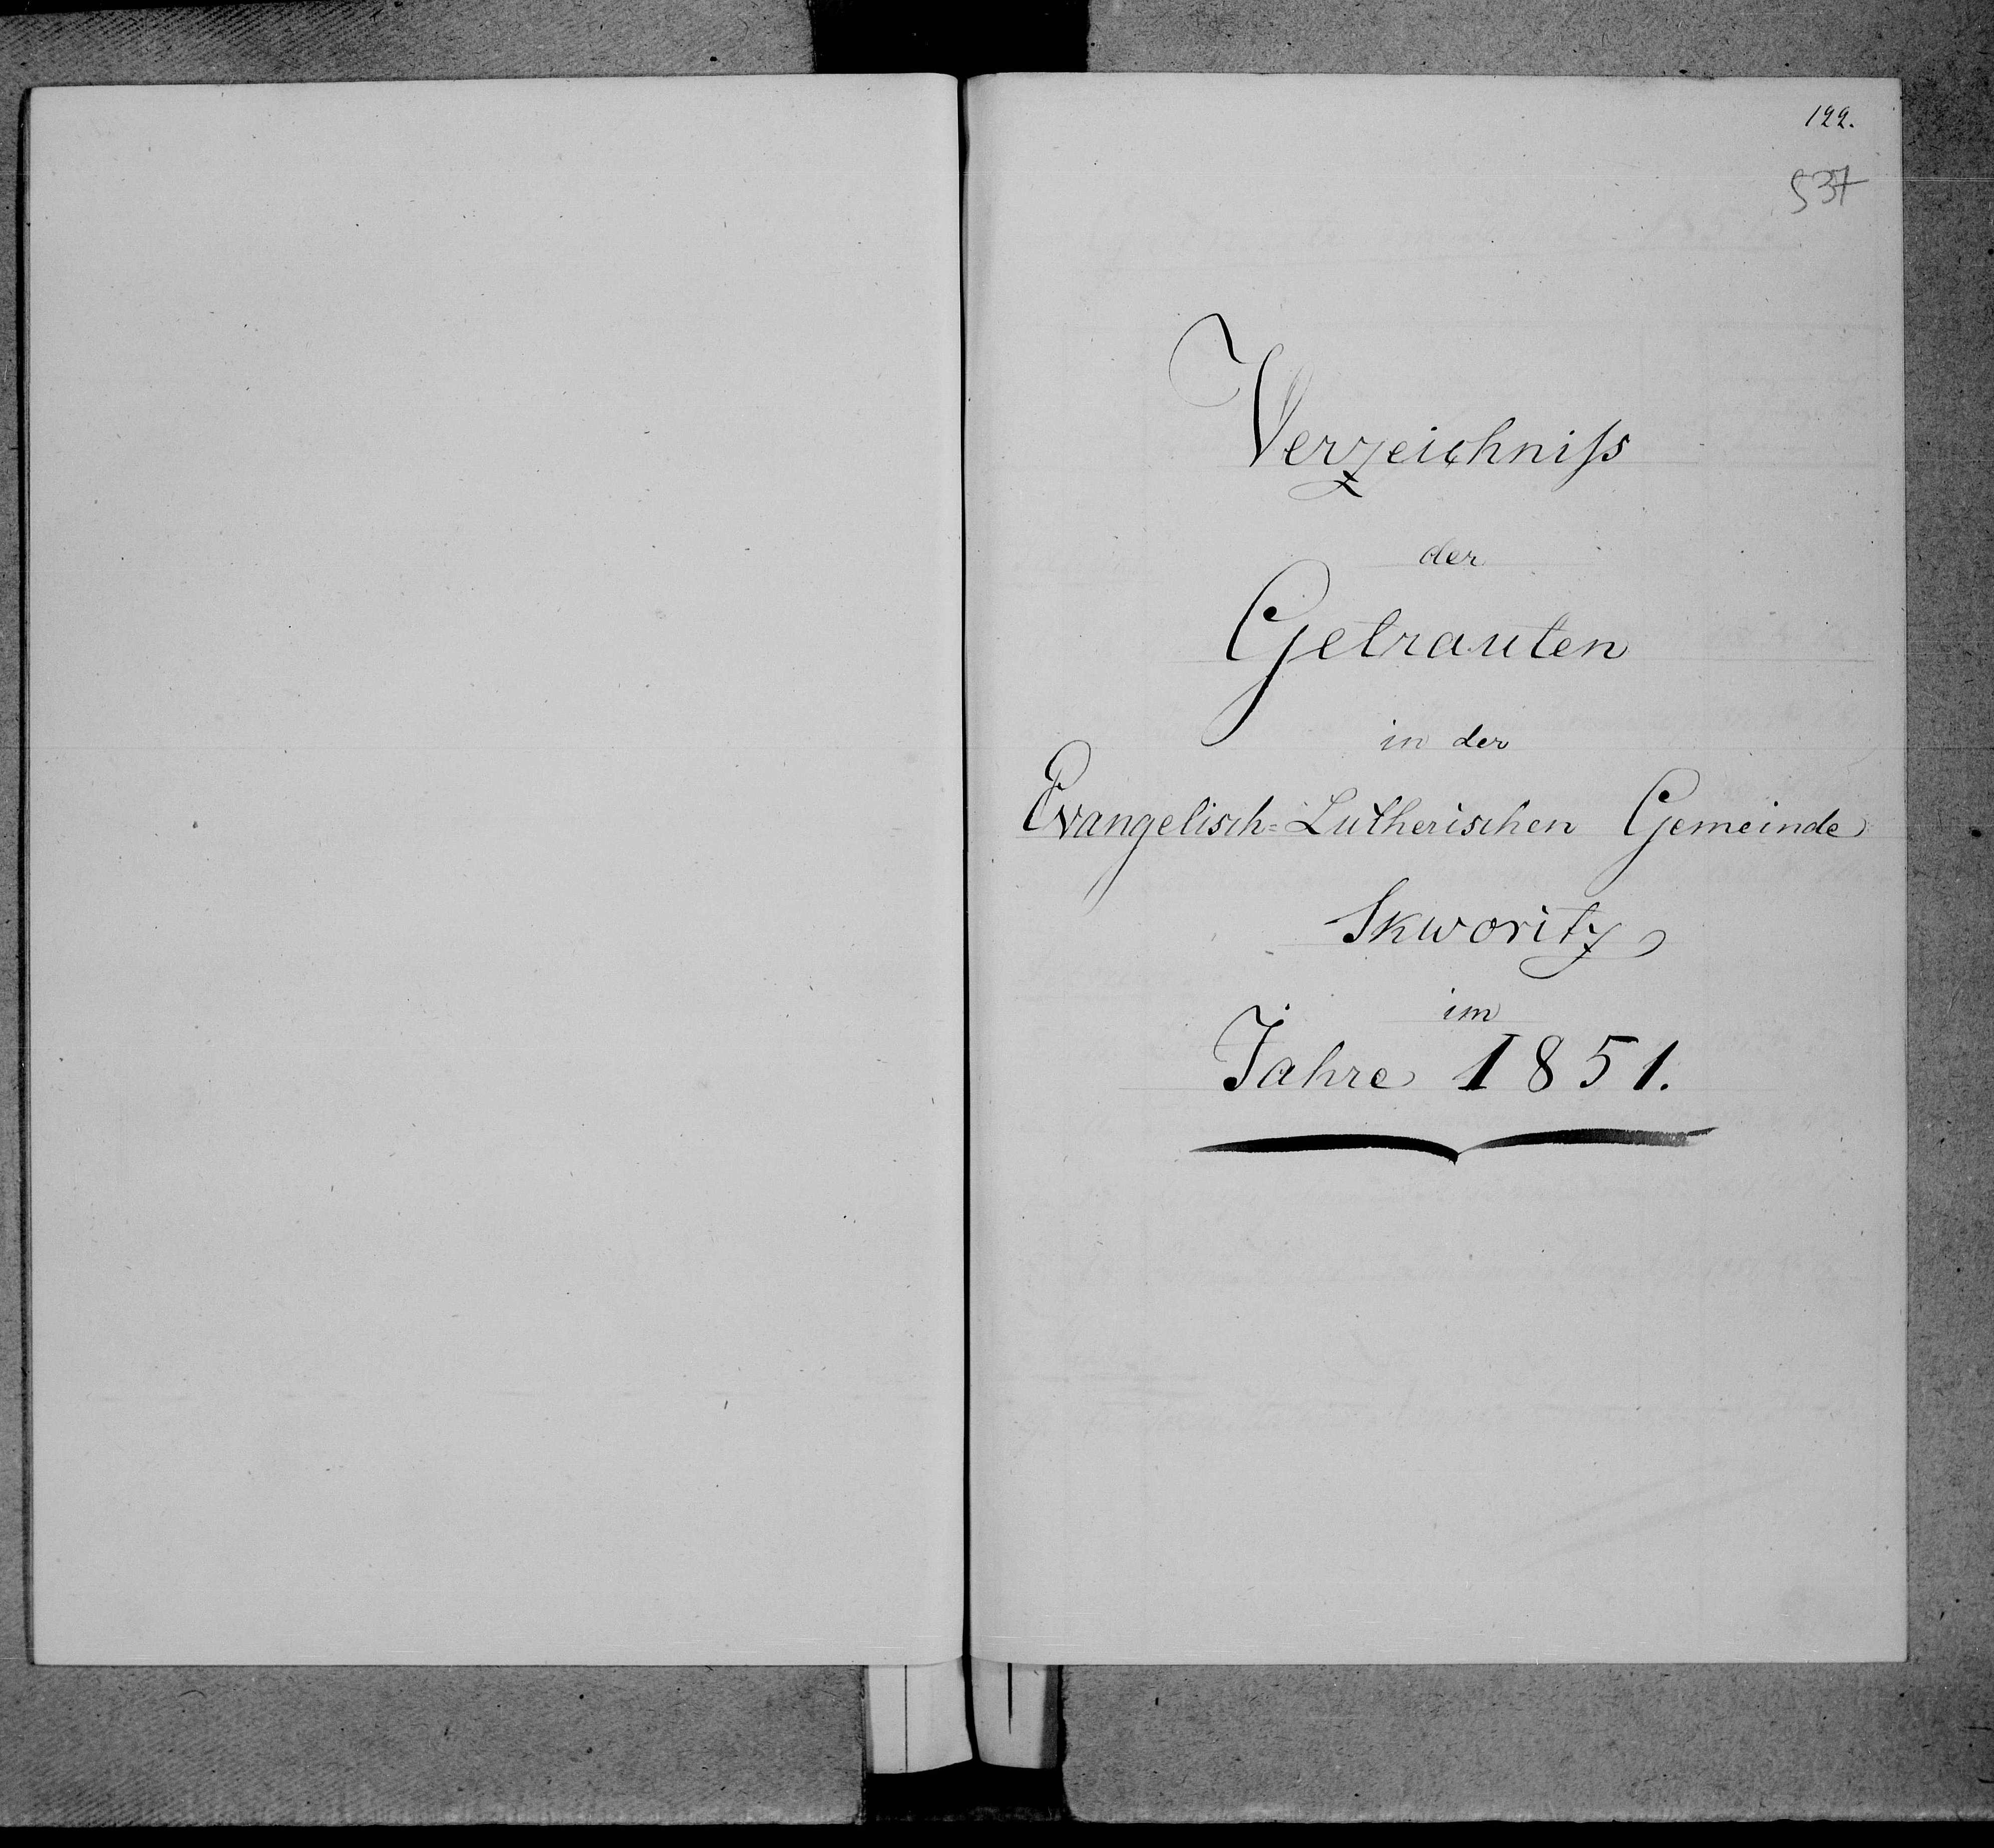 122.
537
Verzeichniſs
der
Getrauten
in der
Evangelisch=Lutherischen Gemeinde
Skworitz
im
Jahre 1851.